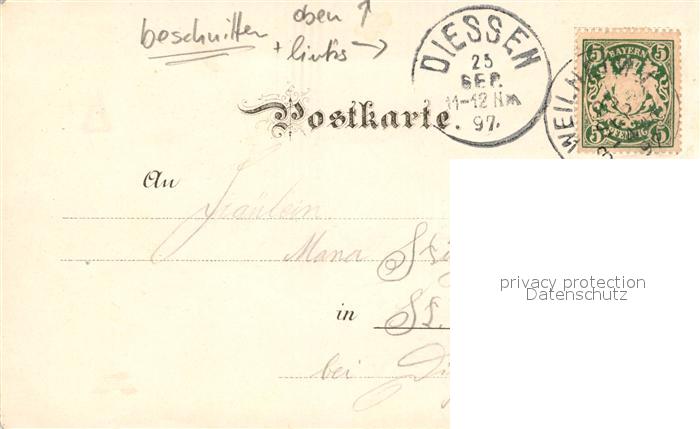 beschnitten oben ↑
+ links →
DIESSEN
25
SEP.
11-12 Nm
. 97.
5 BAYERN 5
5 PFENNIG 5
WEILH
Postkarte.
An Fräulein
in St.
bei
privacy protection
Datenschutz